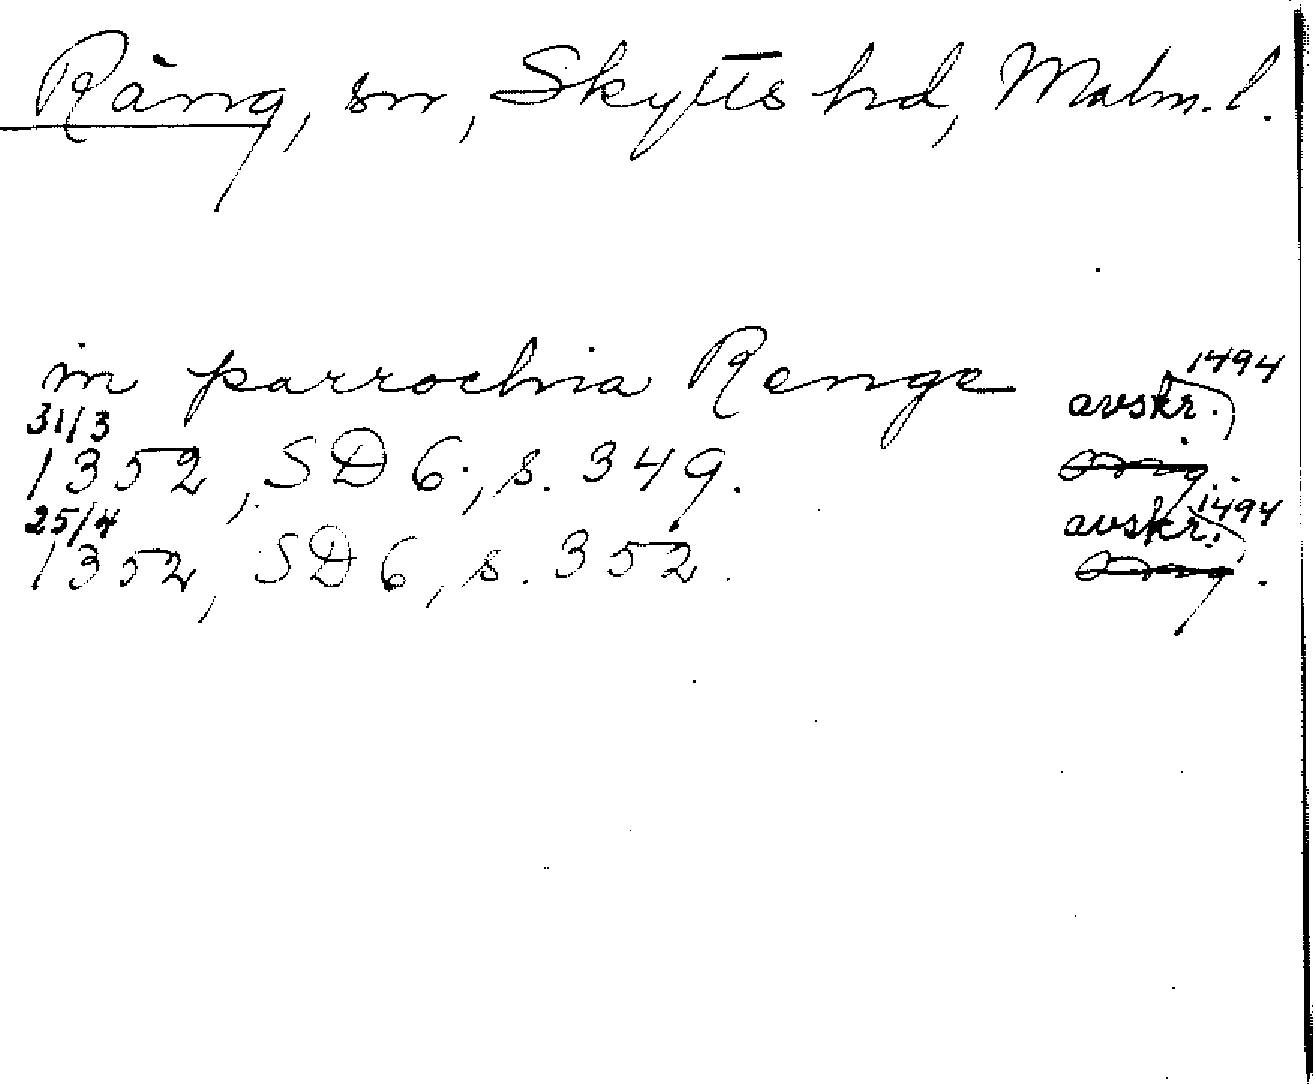 Räng, sn, Skytts hd, Malm. l.
in parrochia Renge
31/3 1352, SD 6, s. 349. avskr. 1494 orig.
25/4 1352, SD 6, s. 352. avskr. 1494 orig.